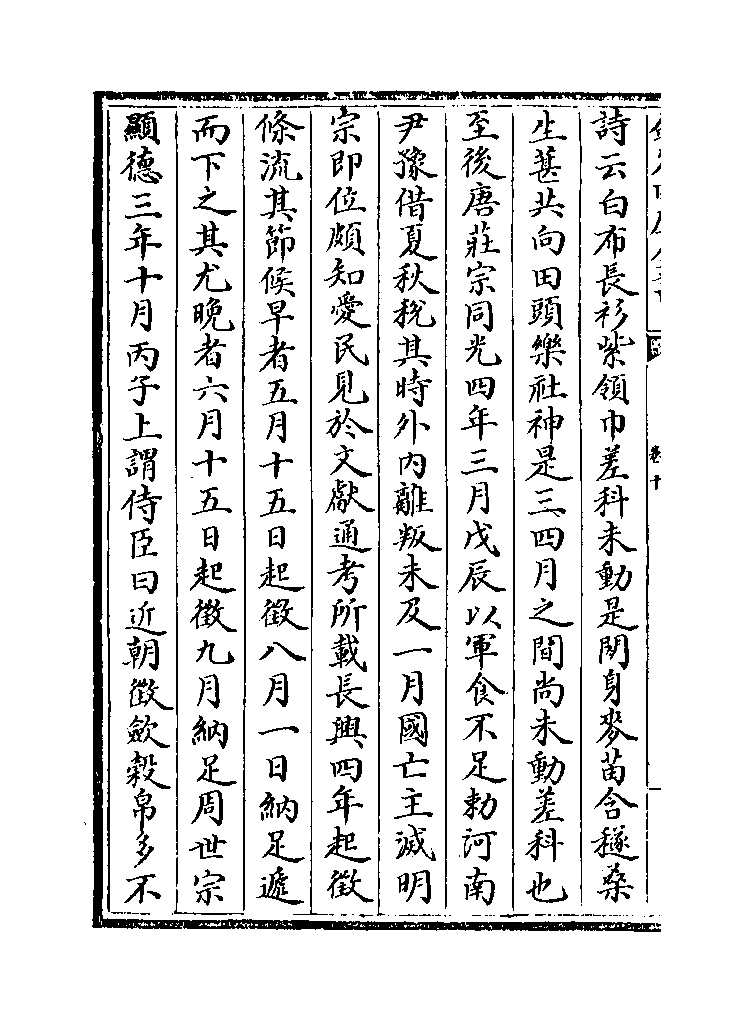 卷十
詩云白布長衫紫領巾差科未動是閑身麥苗含穟桑
生葚共向田頭樂社神是三四月之間尚未動差科也
至後唐莊宗同光四年三月戊辰以軍食不足勅河南
尹豫借夏秋稅其時外内離叛未及一月國亡主滅明
宗即位頗知愛民見於文獻通考所載長興四年起徵
條流其節候早者五月十五日起徵八月一日納足遞
而下之其尤晚者六月十五日起徵九月納足周世宗
顯德三年十月丙子上謂侍臣曰近朝徵斂穀帛多不